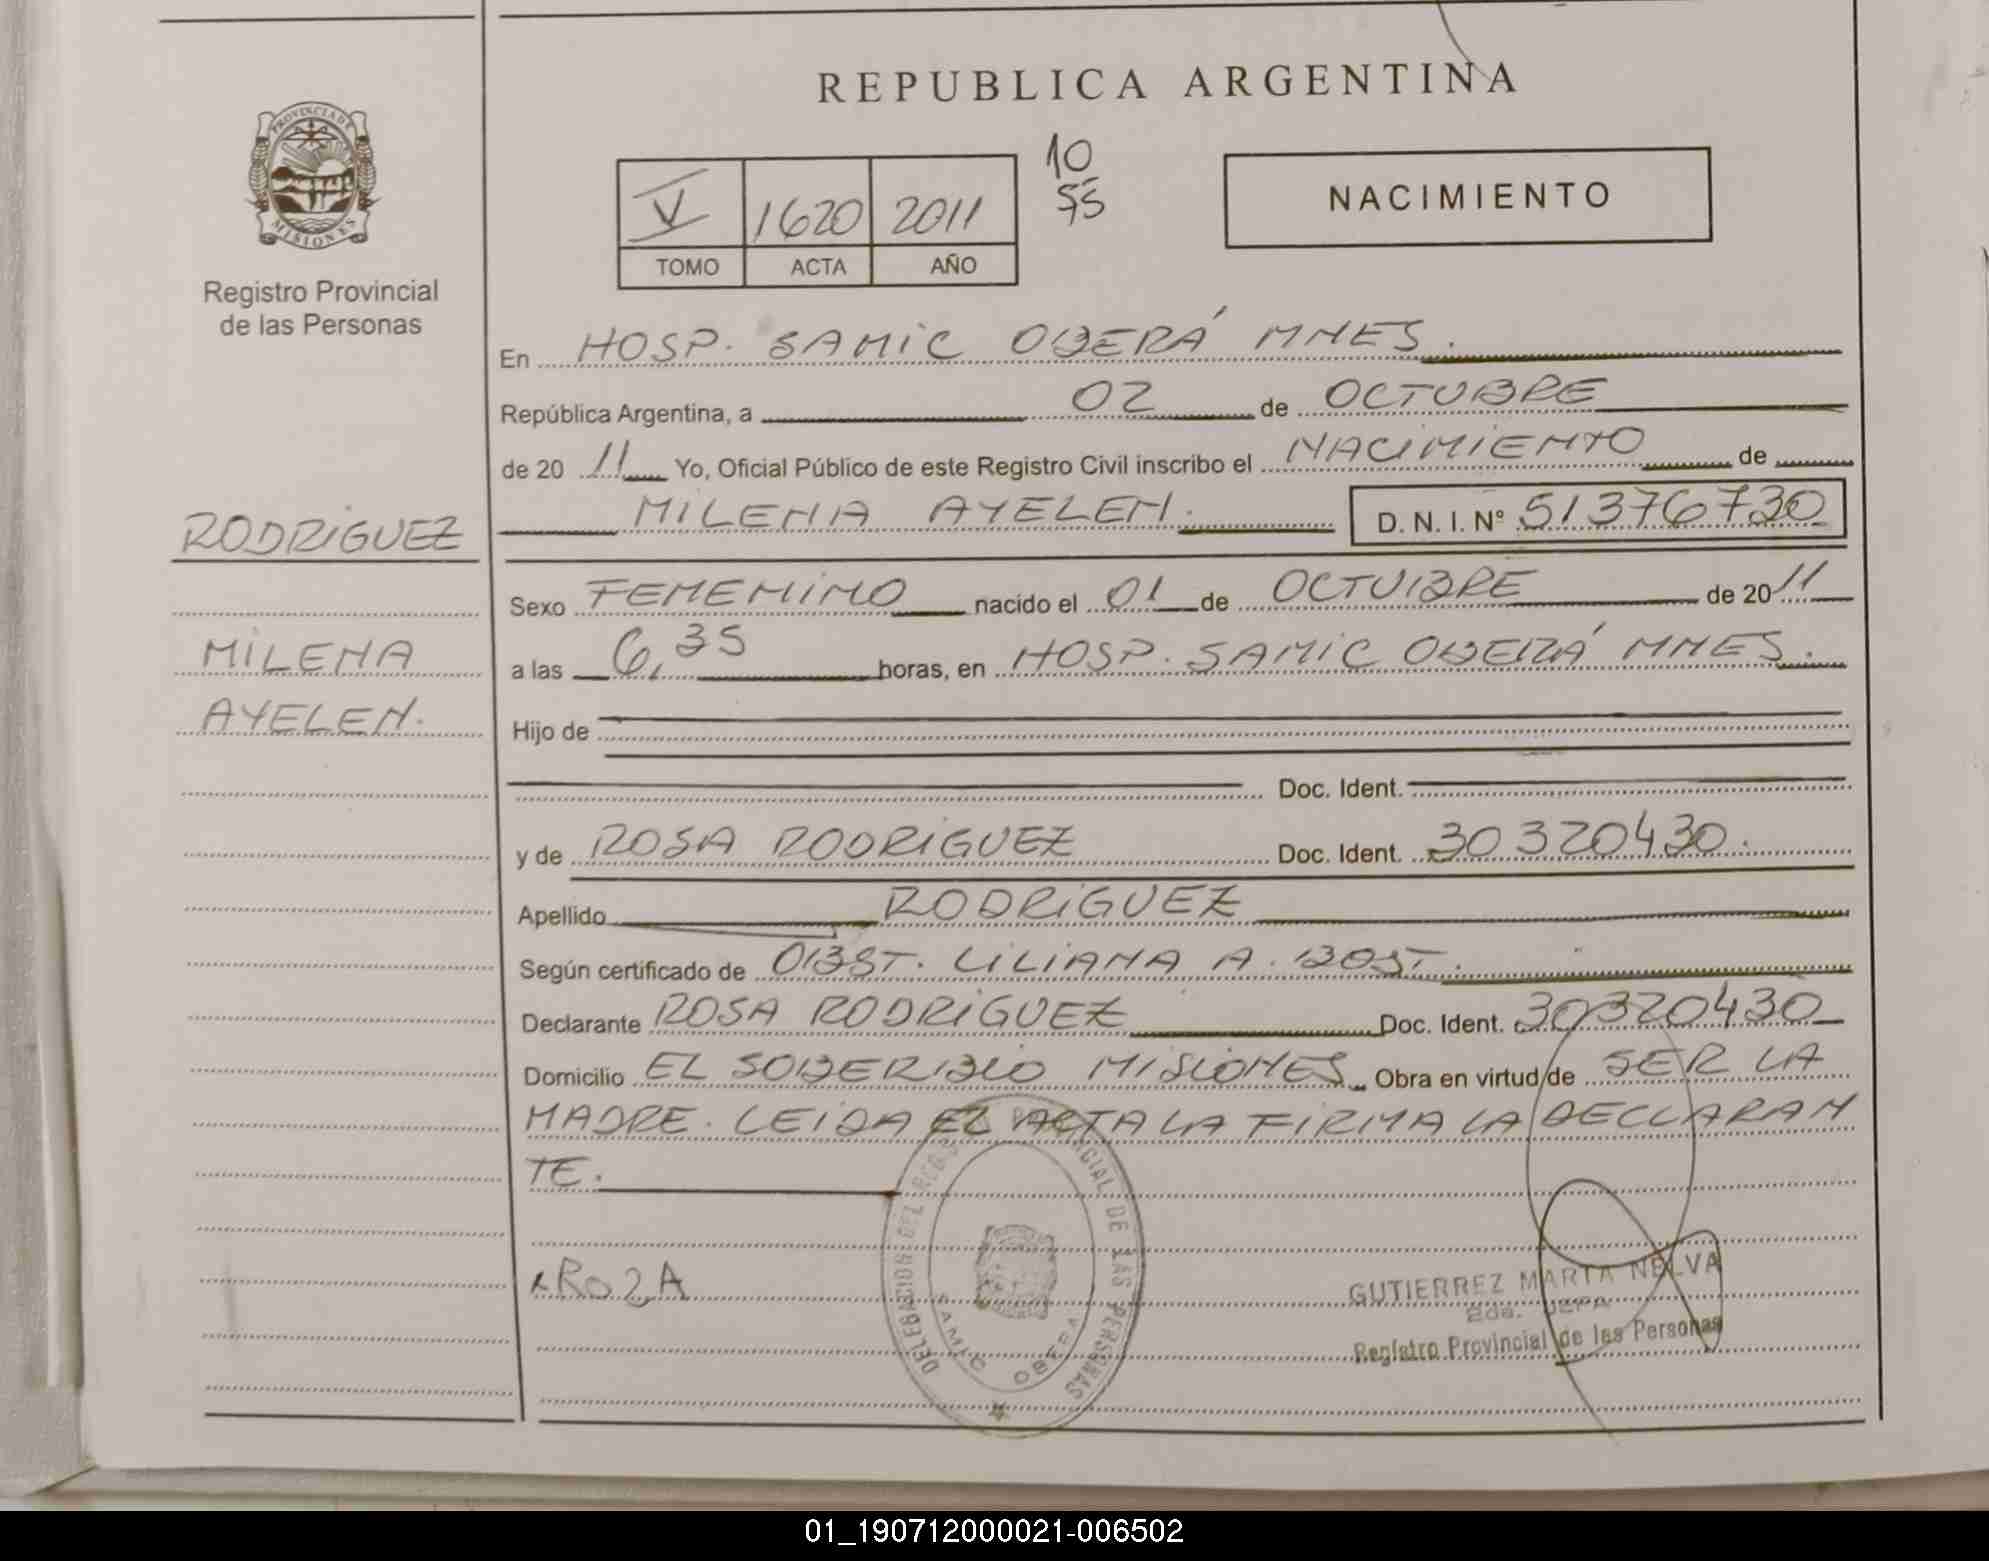 REPUBLICA ARGENTINA
PROVINCIA DE
MISIONES
Registro Provincial
de las Personas
V 1620 2011
TOMO ACTA AÑO
10
55
NACIMIENTO
En HOSP. SAMIC OBERÁ MNES.
República Argentina, a 02 de OCTUBRE
de 20 11 Yo, Oficial Público de este Registro Civil inscribo el NACIMIENTO de
MILENA AYELEN. D. N. I. Nº 51376730
RODRIGUEZ
Sexo FEMENINO nacido el 01 de OCTUBRE de 20 11
MILENA
a las 6,35 horas, en HOSP. SAMIC OBERÁ MNES.
AYELEN.
Hijo de
Doc. Ident.
y de ROSA RODRIGUEZ Doc. Ident. 30320430.
Apellido RODRIGUEZ
Según certificado de OBST. LILIANA A. BOST.
Declarante ROSA RODRIGUEZ Doc. Ident. 30320430
Domicilio EL SOBERBIO MISIONES Obra en virtud de SER LA
MADRE. LEIDA EL ACTA LA FIRMA LA DECLARAN
TE.
DELEGACION DEL REGISTRO PROVINCIAL DE LAS PERSONAS
SAMIC OBERA
x ROZA
GUTIERREZ MARTA NELVA
2da. JEFA
Registro Provincial de las Personas
01_190712000021-006502